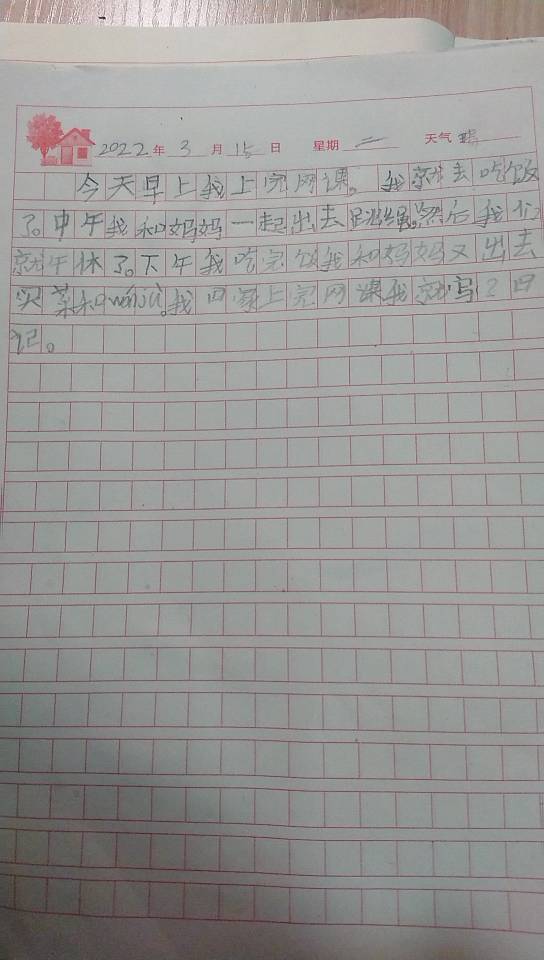 2022年3月15日 星期二 天气晴
今天早上我上完网课。我就去吃饭
了。中午我和妈妈一起出去跳绳。然后我们
就午休了。下午我吃完饭我和妈妈又出去
买菜和wánjù。我回家上完网课我就写日
记。